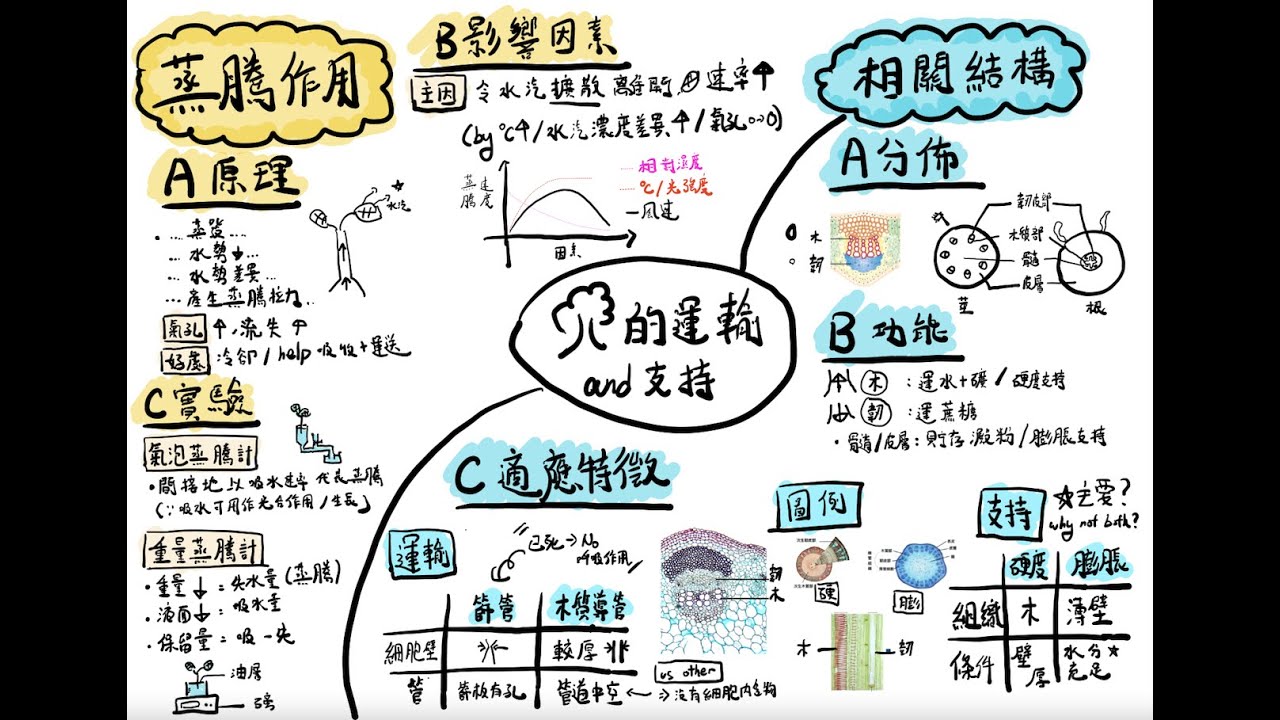 蒸騰作用
A 原理
水汽
... 蒸發 ...
... 水勢↓ ...
... 水勢差異 ...
... 產生蒸騰拉力 ...
氣孔 ↑, 流失 ↑
好處 冷卻 / help 吸收+運送
C 實驗
氣泡蒸騰計
• 間接地以吸水速率代表蒸騰
(∵吸水可用作光合作用/生長)
重量蒸騰計
• 重量↓ = 失水量 (蒸騰)
• 液面↓ = 吸水量
• 保留量 = 吸 - 失
油層
磅
B 影響因素
主因 令水汽擴散離開的速率↑
(by ℃↑ / 水汽濃度差異↑ / 氣孔
蒸騰速度
因素
相對濕度
℃/光強度
風速
的運輸
and 支持
相關結構
A 分佈
木
韌
韌皮部
木質部
髓
皮層
莖
根
B 功能
木 : 運水+礦 / 硬度支持
韌 : 運蔗糖
• 髓/皮層 : 貯存澱粉 / 膨脹支持
C 適應特徵
運輸
已死 → No
呼吸作用
篩管 木質導管
細胞壁 較厚
管 篩板有孔 管道中空 ← → 沒有細胞內含物
vs other
韌
木
圖例
硬
膨
木
韌
支持
☆主要?
why not both?
硬度 膨脹
組織 木 薄壁
條件 壁厚 水分充足